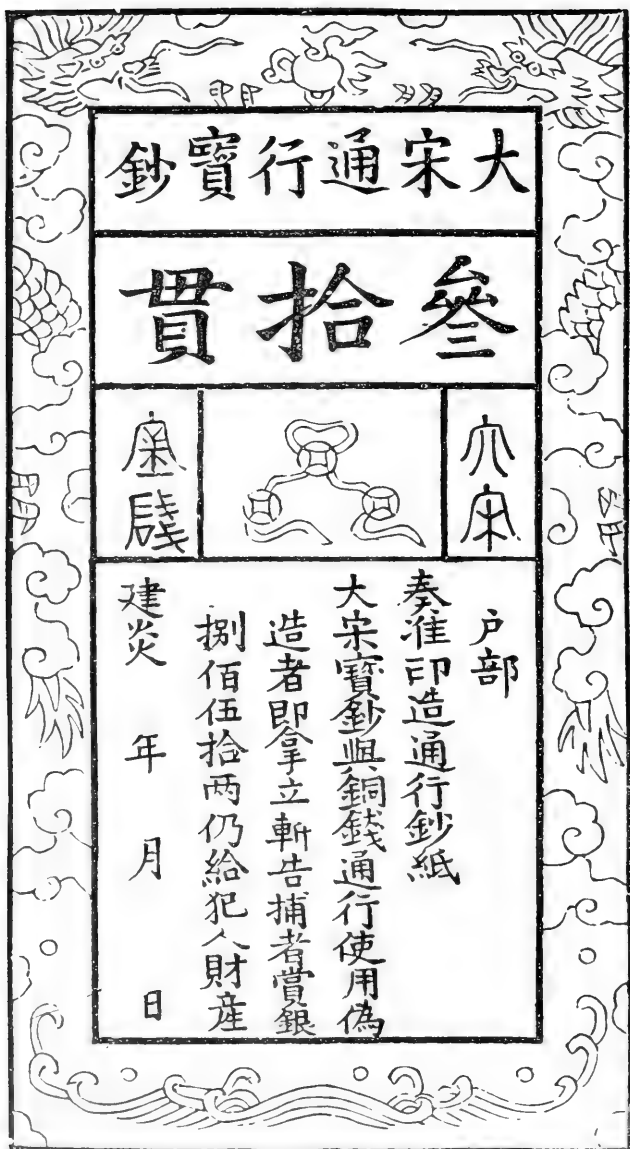 大宋通行寳鈔
叄拾貫
大宋
户部
奏准印造通行鈔紙
大宋寳鈔與銅錢通行使用偽
造者即拿立斬告捕者賞銀
捌佰伍拾两仍給犯人財産
建炎 年 月 日